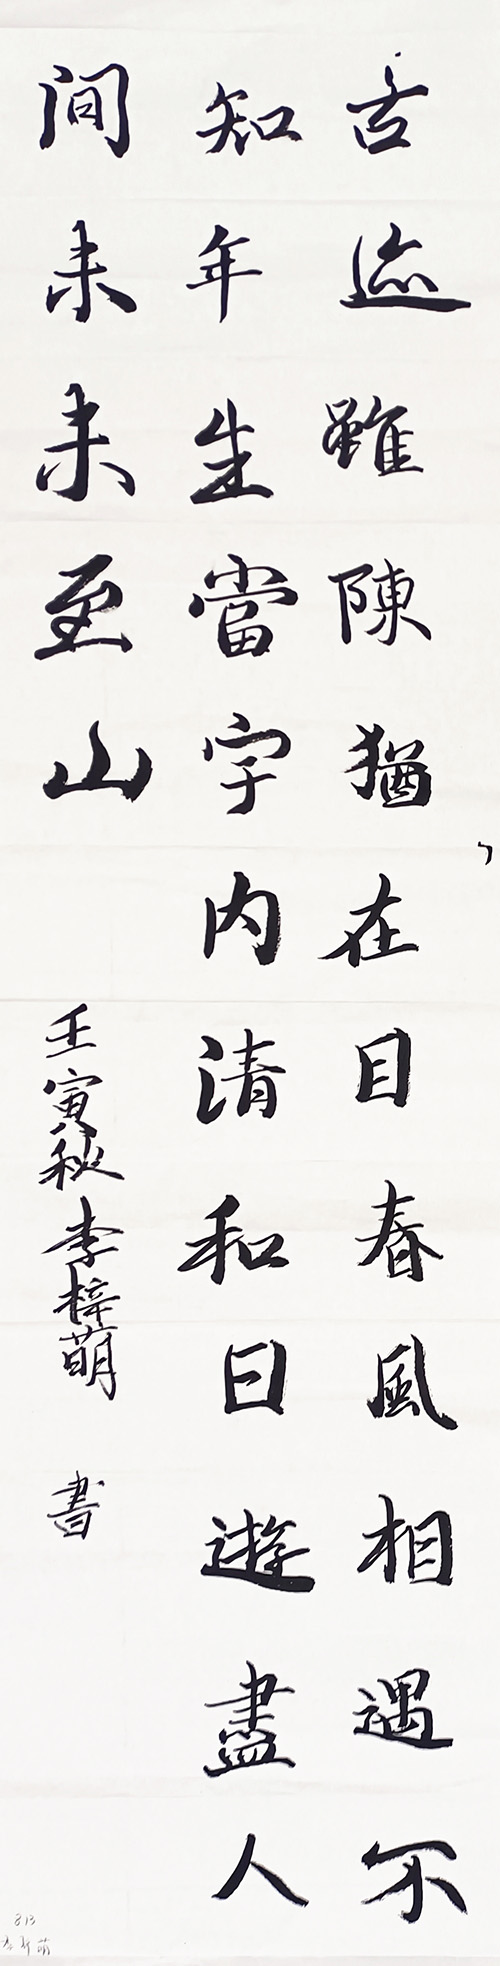 古迹雖陳猶在目春風相遇不
知年生當宇内清和日遊盡人
間未未至山
壬寅秋李梓萌 書
813